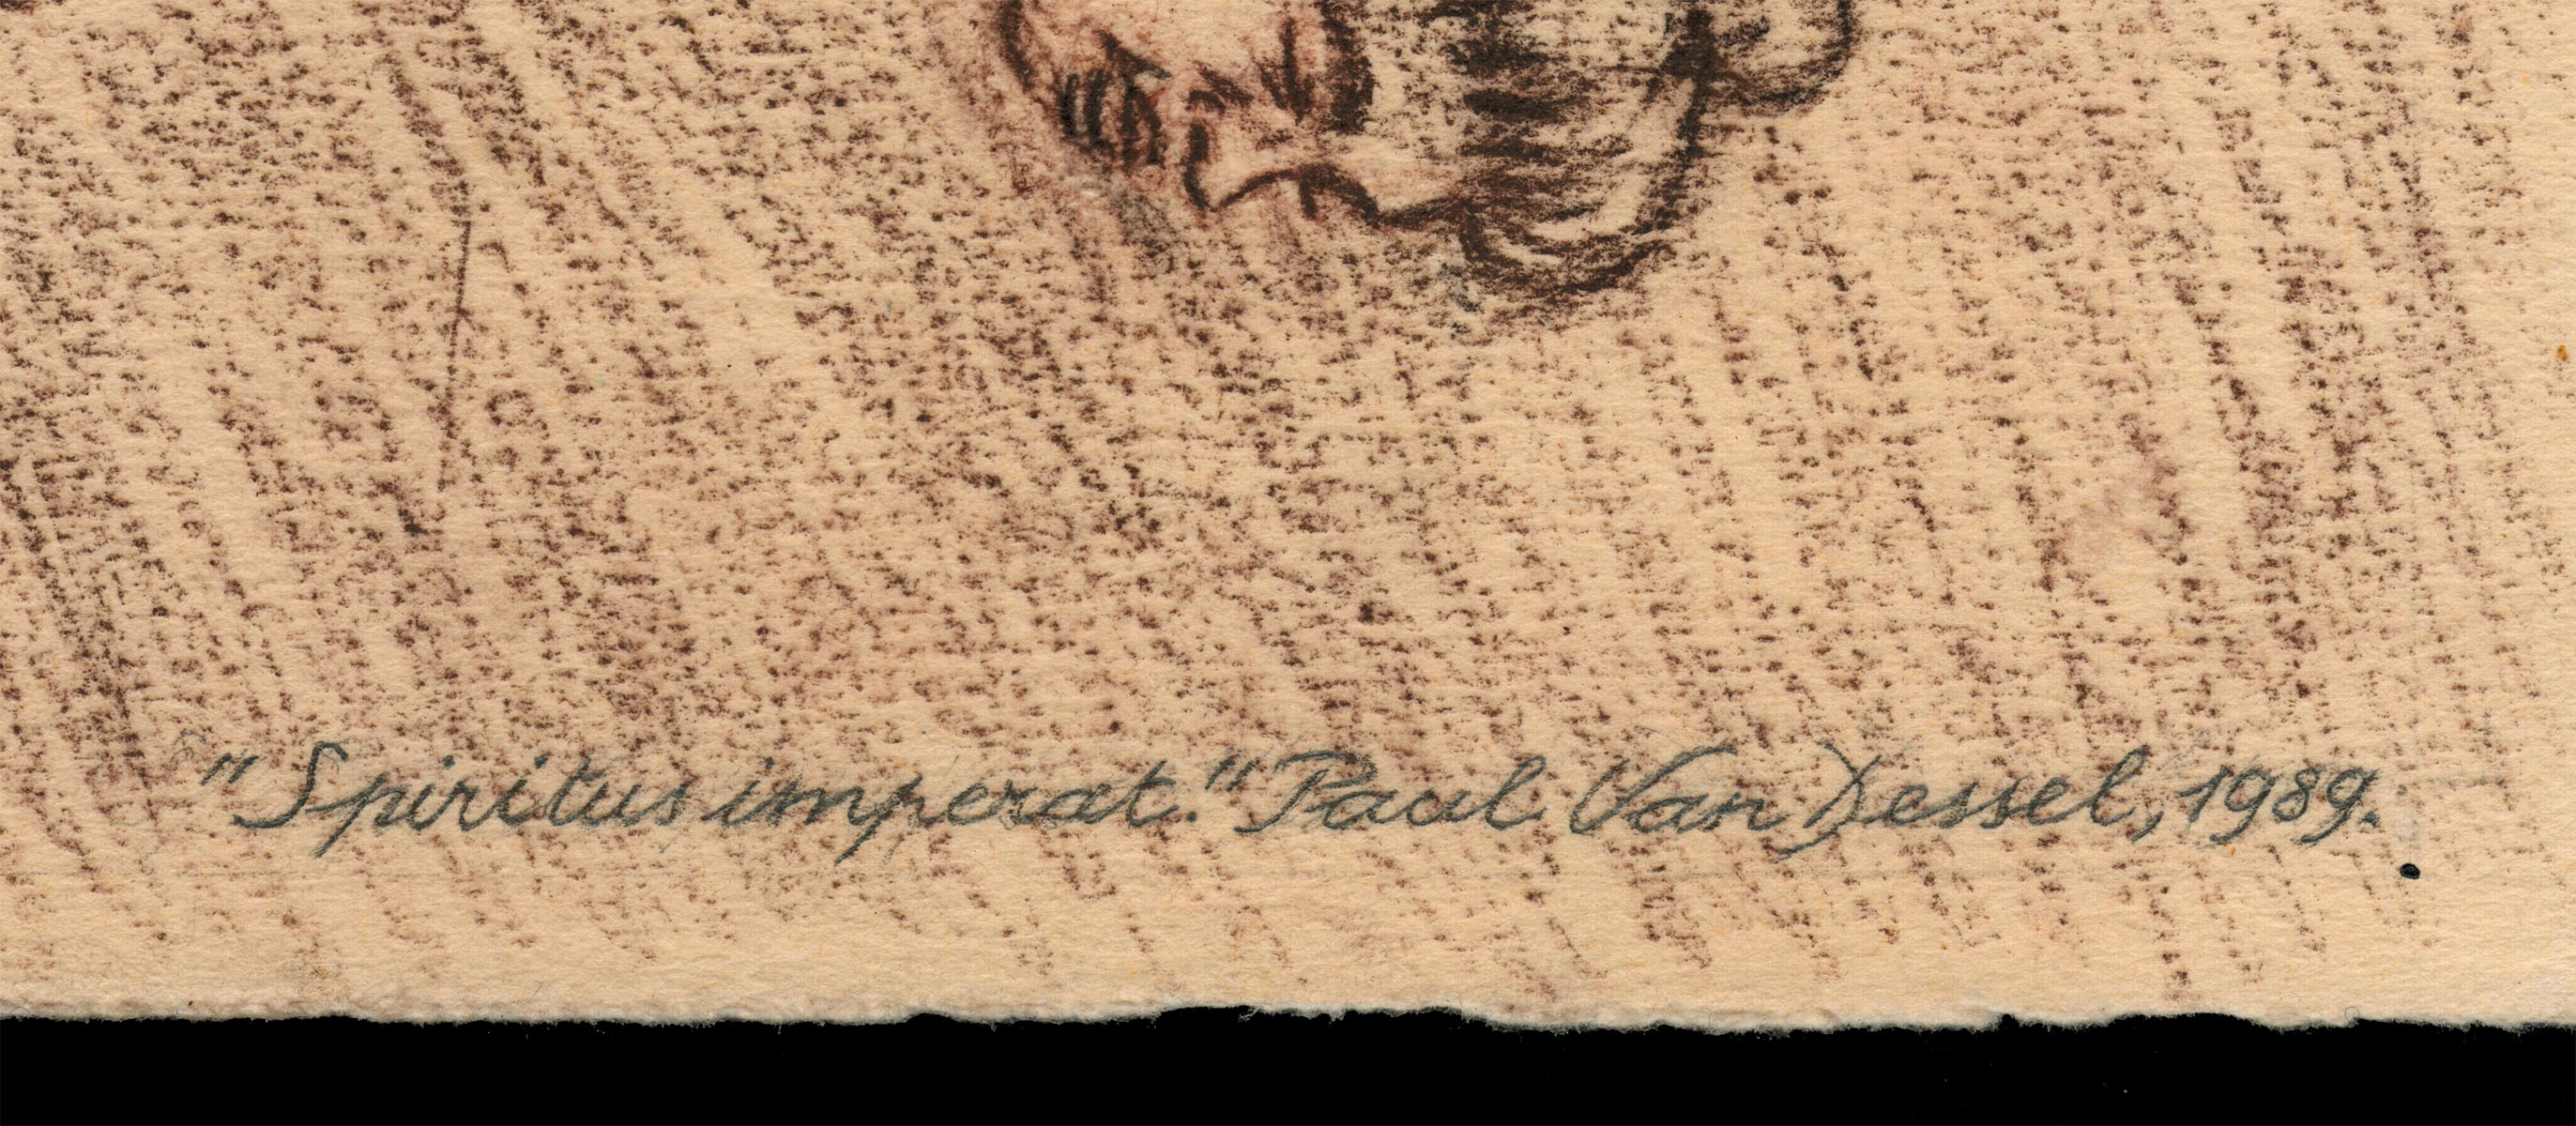 "Spiritus imperat." Paul Van Dessel, 1989.